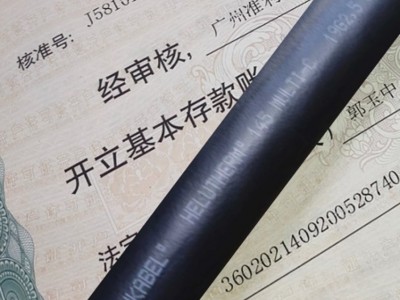 核准号: J5810
广州准
经审核,
开立基本存款账
郭玉中
法定
3602021409200528740
KABEL® HELUTHERM® 145 MULTI-C 1962.5